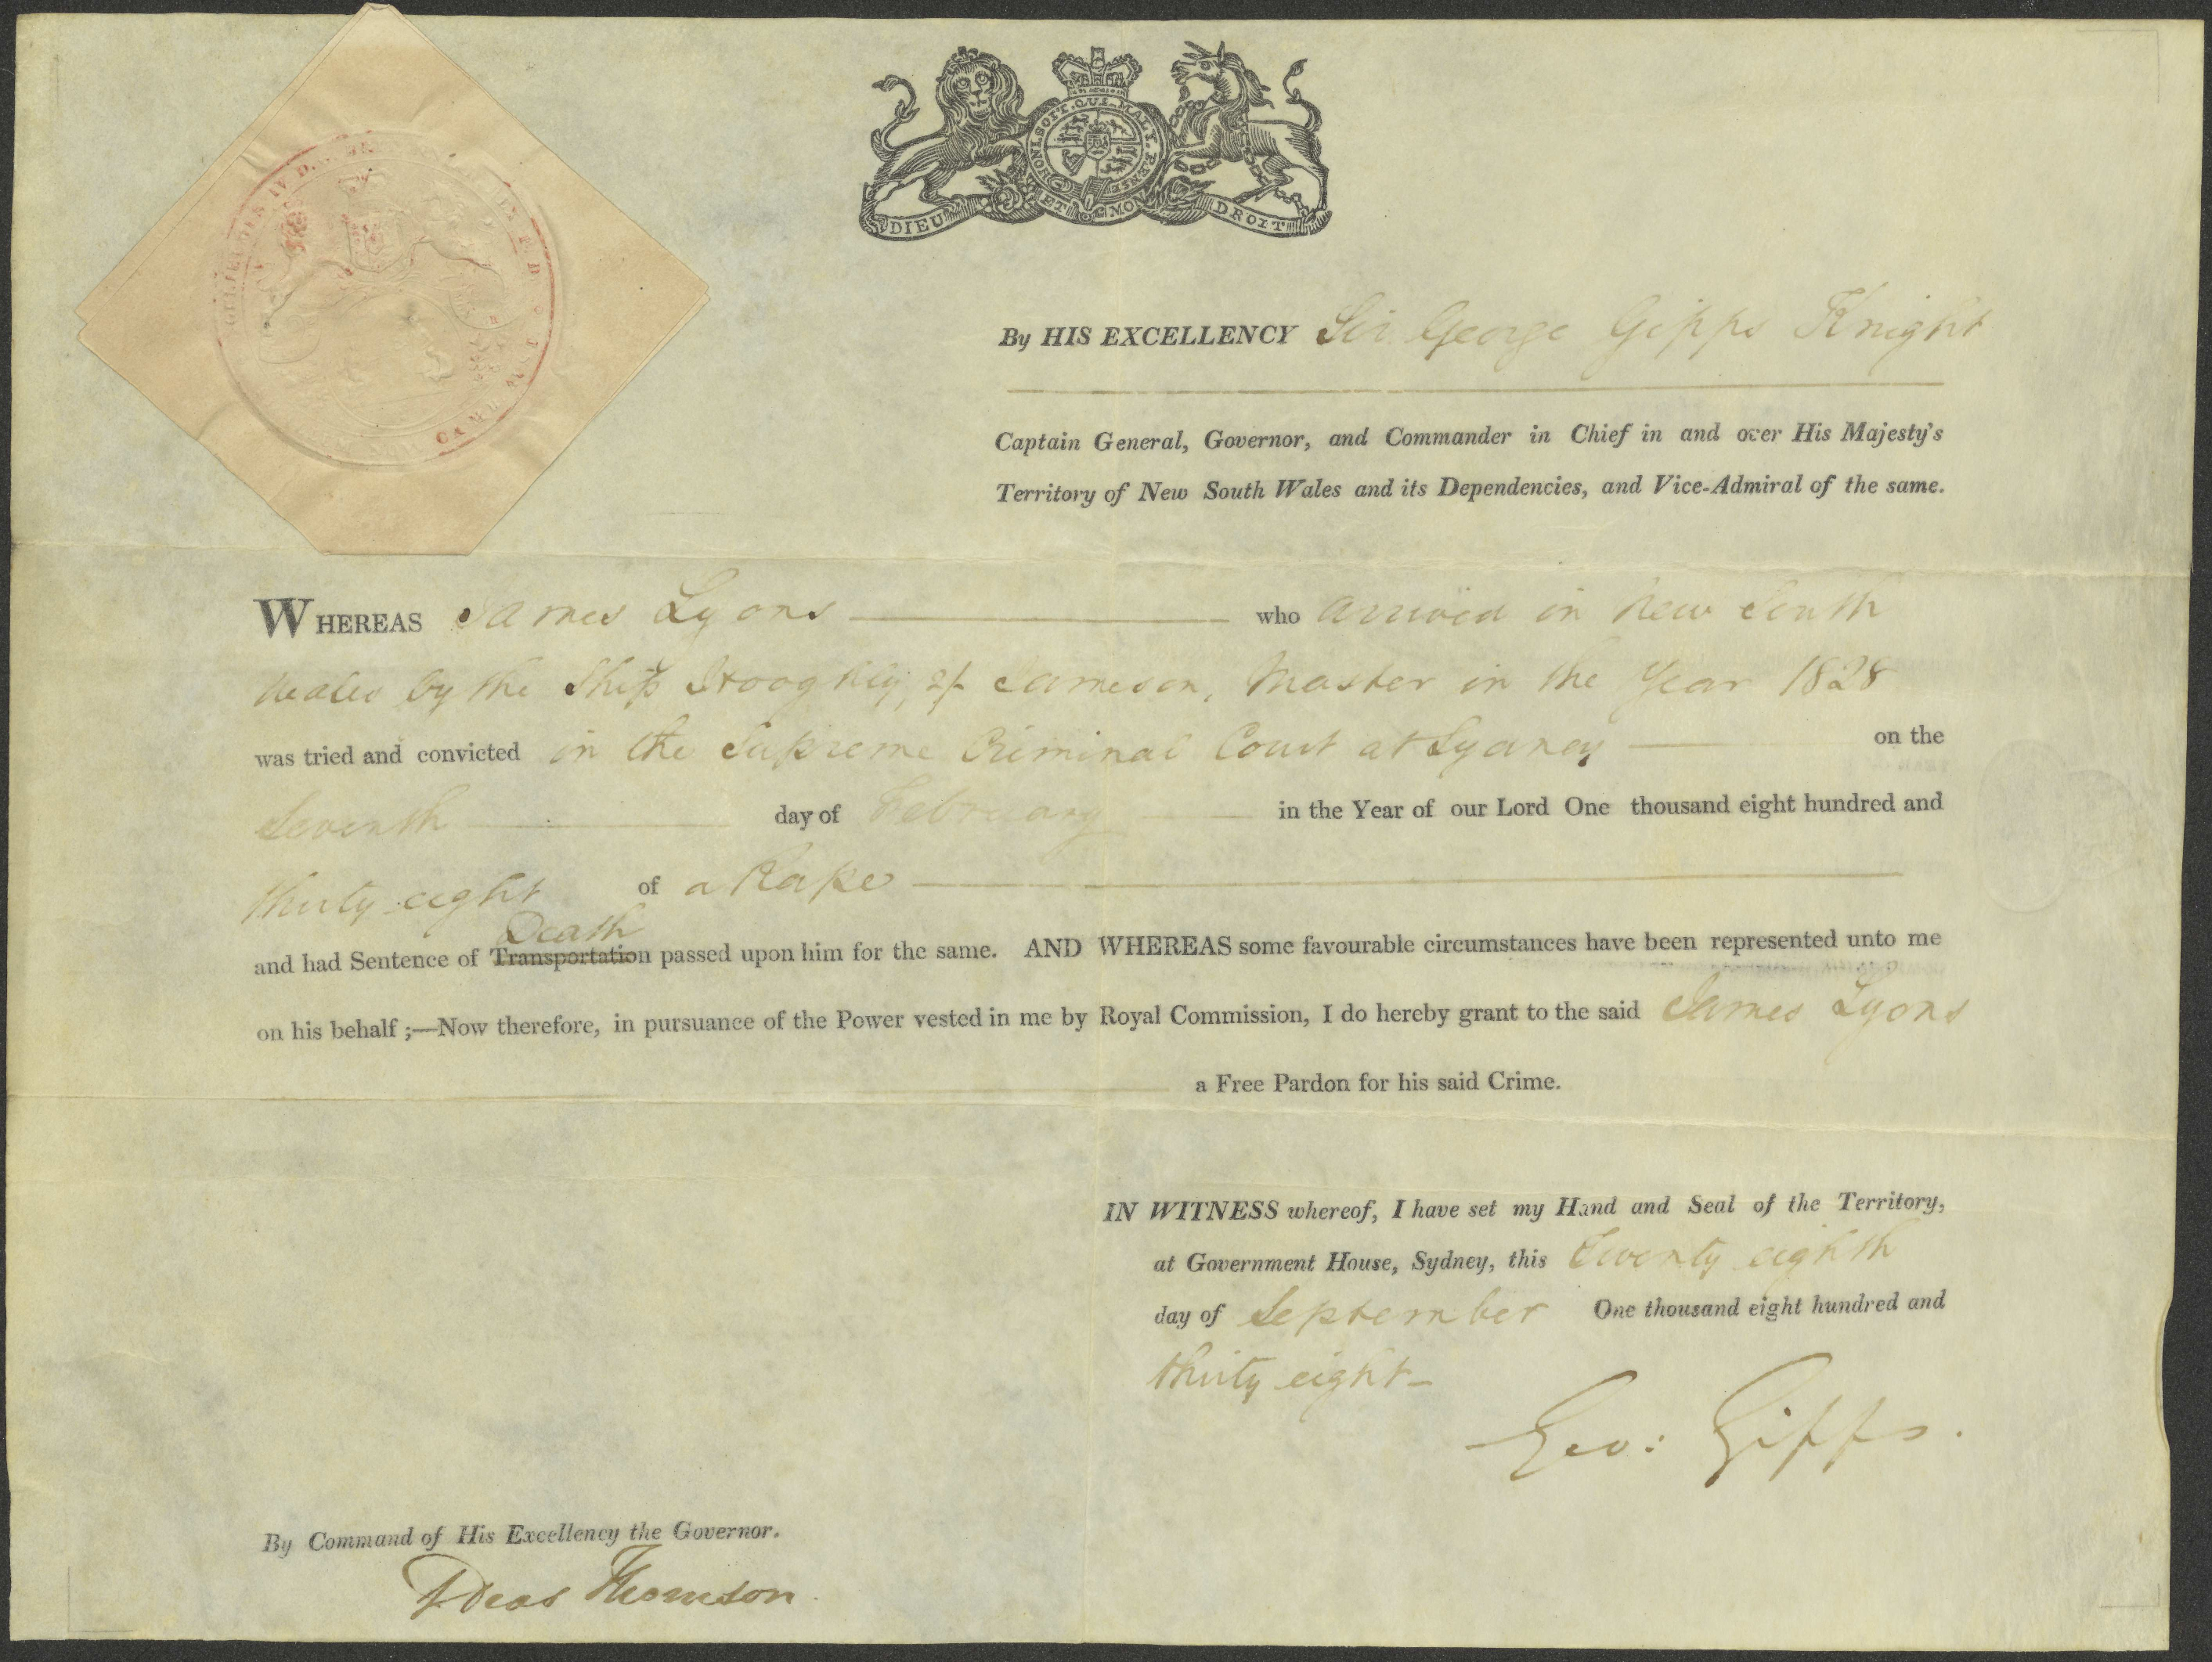 HONI.SOIT.QUI.MAL.Y.PENSE
DIEU ET MON DROIT
By HIS EXCELLENCY Sir George Gipps Knight
Captain General, Governor, and Commander in Chief in and over His Majesty's
Territory of New South Wales and its Dependencies, and Vice-Admiral of the same.
WHEREAS James Lyons who arrived in New South
Wales by the Ship Hooghley, Jameson, Master in the Year 1828
was tried and convicted in the Supreme Criminal Court at Sydney on the
Seventh day of February in the Year of our Lord One thousand eight hundred and
thirty eight of a Rape
Death
and had Sentence of Transportation passed upon him for the same. AND WHEREAS some favourable circumstances have been represented unto me
on his behalf ;—Now therefore, in pursuance of the Power vested in me by Royal Commission, I do hereby grant to the said James Lyons
a Free Pardon for his said Crime.
IN WITNESS whereof, I have set my Hand and Seal of the Territory,
at Government House, Sydney, this twenty eighth
day of September One thousand eight hundred and
thirty eight
Geo: Gipps.
By Command of His Excellency the Governor.
Deas Thomson